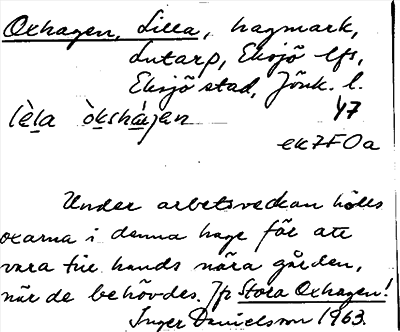 Oxhagen, Lilla, hagmark,
Lutarp, Eksjö lfs,
Eksjö stad, Jönk. l.
lèla òksha̋jen 47
ek7F0a
Under arbetsveckan hölls
oxarna i denna hage för att
vara till hands nära gården,
när de behövdes. Jfr Stora Oxhagen!
Inger Danielsson 1963.